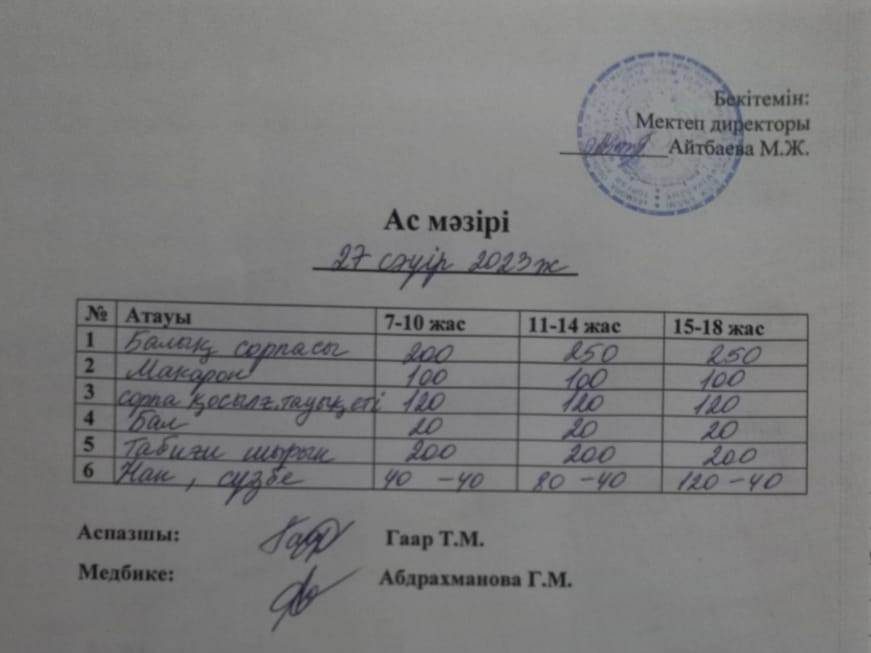 Бекітемін:
Мектеп директоры
Айтбаева М.Ж.
Ас мәзірі
27 сәуір 2023 ж
№ Атауы 7-10 жас 11-14 жас 15-18 жас
1 Балық сорпасы 200 250 250
2 Макарон 100 100 100
3 сорпа қосылғ. тауық еті 120 120 120
4 Бал 20 20 20
5 Табиғи шырын 200 200 200
6 Нан, сүзбе 40 -40 80 -40 120 -40
Аспазшы: Гаар Т.М.
Медбике: Абдрахманова Г.М.